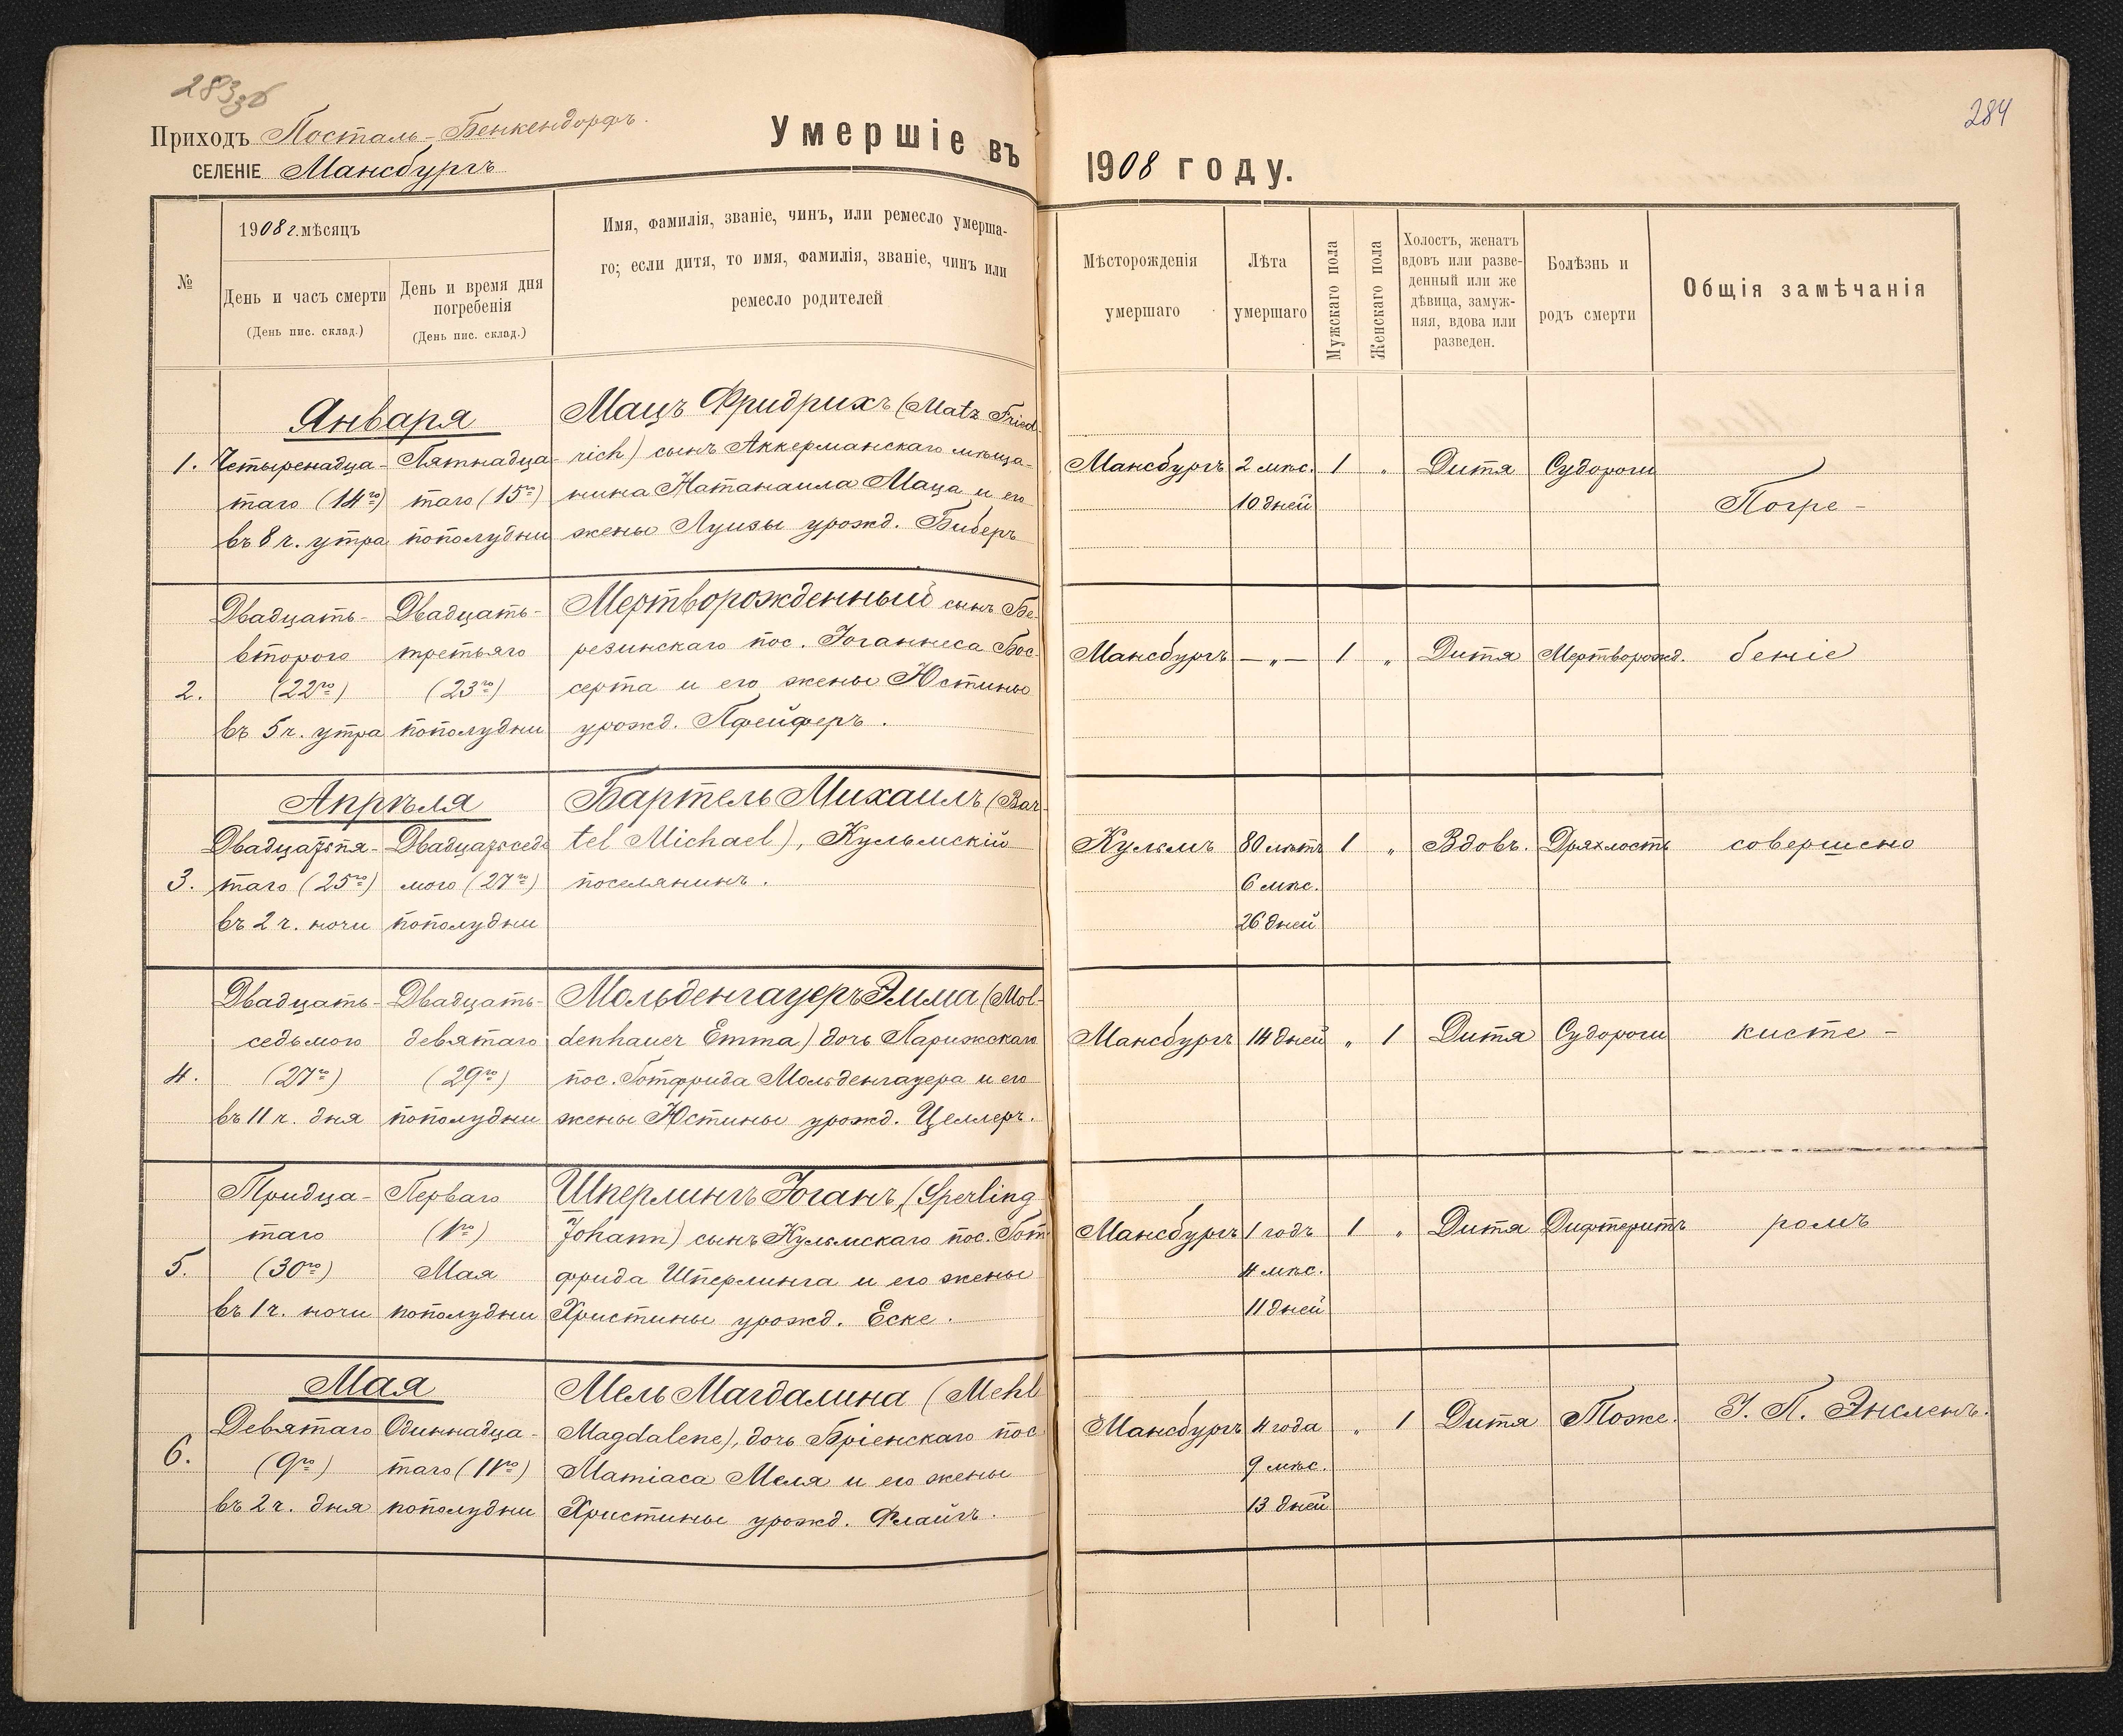 283 зб
284
Приходъ Посталь-Бенкендорфъ.
СЕЛЕНІЕ Мансбургъ
Умершіе въ 1908 году.
№
1908 г. мѣсяцъ
День и часъ смерти
(День пис. склад.)
День и время дня
погребенія
(День пис. склад.)
Имя, фамилія, званіе, чинъ, или ремесло умерша-
го; если дитя, то имя, фамилія, званіе, чинъ или
ремесло родителей
Мѣсторожденія
умершаго
Лѣта
умершаго
Мужскаго пола
Женскаго пола
Холостъ, женатъ
вдовъ или разве-
денный или же
дѣвица, замуж-
няя, вдова или
разведен.
Болѣзнь и
родъ смерти
Общія замѣчанія
Января
1.
Четыренадца-
таго (14го)
въ 8 ч. утра
Пятнадца-
таго (15го)
пополудни
Мацъ Фридрихъ (Matz Fried-
rich) сынъ Аккерманскаго мѣща-
нина Натанаила Маца и его
жены Луизы урожд. Биберъ
Мансбургъ
2 мѣс.
10 дней
1
„
Дитя
Судороги
Погре-
2.
Двадцать-
второго
(22го)
въ 5 ч. утра
Двадцать-
третьяго
(23го)
пополудни
Мертворожденный сынъ Бе-
резинскаго пос. Іоганнеса Бос-
серта и его жены Юстины
урожд. Пфейферъ.
Мансбургъ
— „ —
1
„
Дитя
Мертворожд.
беніе
Апрѣля
3.
Двадцатьпя-
таго (25го)
въ 2 ч. ночи
Двадцатьседь
мого (27го)
пополудни
Бартель Михаилъ (Bar-
tel Michael), Кульмскій
поселянинъ.
Кульмъ
80 лѣтъ
6 мѣс.
26 дней
1
„
Вдовъ.
Дряхлость
совершено
4.
Двадцать-
седьмого
(27го)
въ 11 ч. дня
Двадцать-
девятаго
(29го)
пополудни
Мольденгауеръ Эмма (Mol-
denhauer Emma) дочь Парижскаго
пос. Готфрида Мольденгауера и его
жены Юстины урожд. Целлеръ.
Мансбургъ
14 дней
„
1
Дитя
Судороги
кисте-
5.
Тридца-
таго
(30го)
въ 1 ч. ночи
Перваго
(1го)
Мая
пополудни
Шперлингъ Іоганъ, (Sperling
Johann) сынъ Кульмскаго пос. Гот
фрида Шперлинга и его жены
Христины урожд. Еске.
Мансбургъ
1 годъ
4 мѣс.
11 дней
1
„
Дитя
Дифтеритъ
ромъ
Мая
6.
Девятаго
(9го)
въ 2 ч. дня
Одиннадца-
таго (11го)
пополудни
Мель Магдалина (Mehl
Magdalene), дочь Бріенскаго пос
Матіаса Меля и его жены
Христины урожд. Флайгъ.
Мансбургъ
4 года
9 мѣс.
13 дней
„
1
Дитя
Тоже.
І. П. Энсленъ.